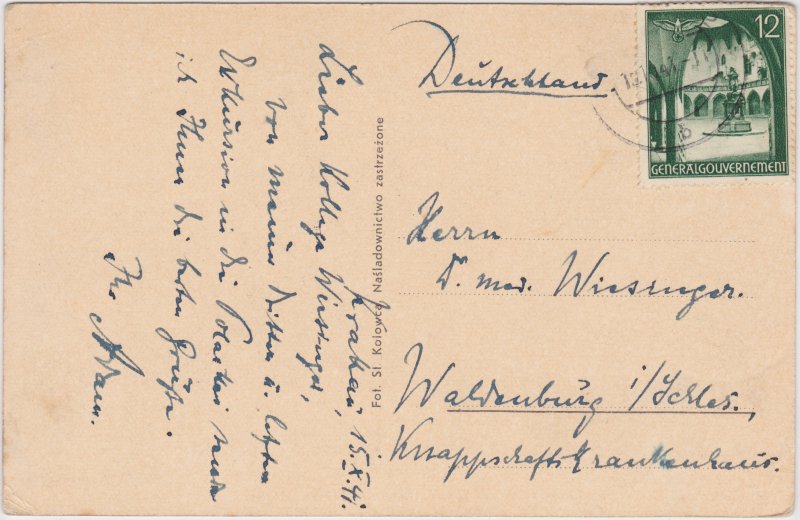 Krakau, 15.X.41.
Lieber Kollege Wiesinger,
Von meiner dritten u. letzten
Exkursion in die Polackei sende
ich Ihnen die besten Grüße.
Ihr
Fot. St. Kolowca Naśladownictwo zastrzeżone
Deutschland
12
GENERALGOUVERNEMENT
Herrn
Dr. med. Wiesinger.
Waldenburg i/Schles.,
Knappschaftskrankenhaus.